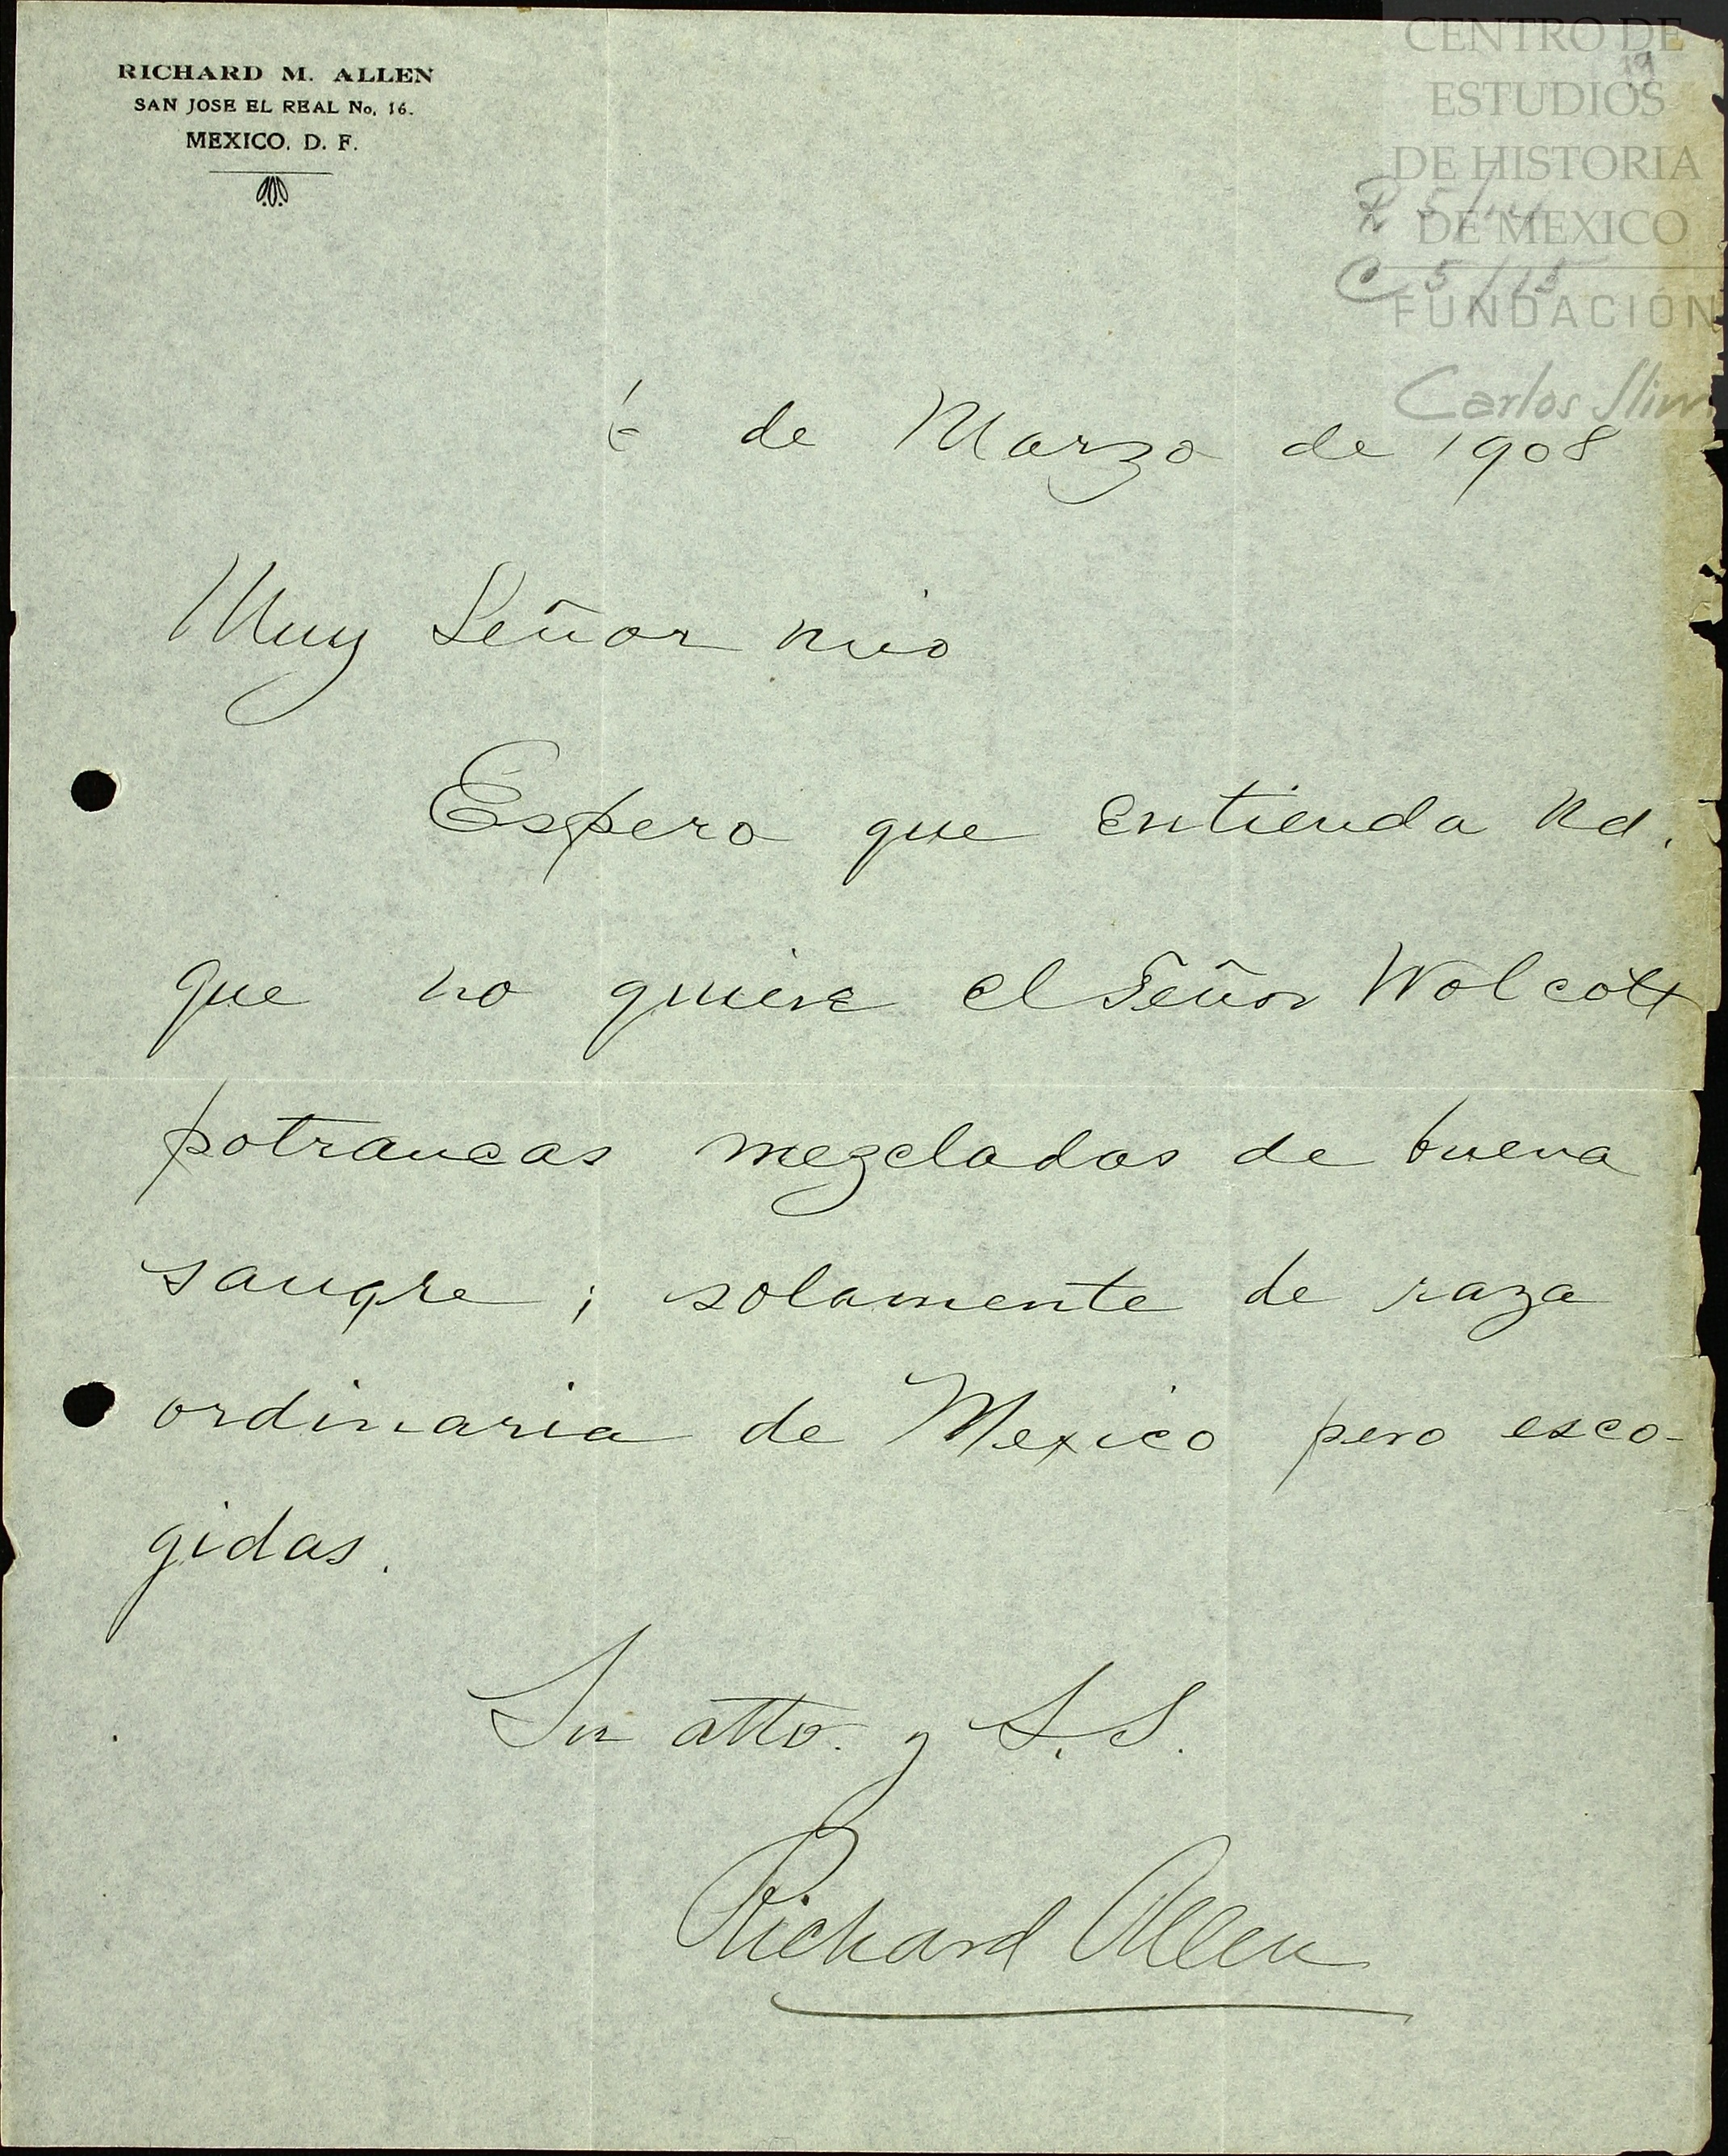 RICHARD M. ALLEN
SAN JOSE EL REAL No. 16.
MEXICO. D. F.
CENTRO DE
19
ESTUDIOS
DE HISTORIA
R 5/14
DE MEXICO
C 5/15
FUNDACIÓN
Carlos Slim
de Marzo de 1908
Muy Señor mio
Espero que entienda Ud.
que no quiere el Señor Wolcott
potrancas mezcladas de buena
sangre; solamente de raza
ordinaria de Mexico pero esco-
gidas.
Su atto. y S.S.
Richard Allen